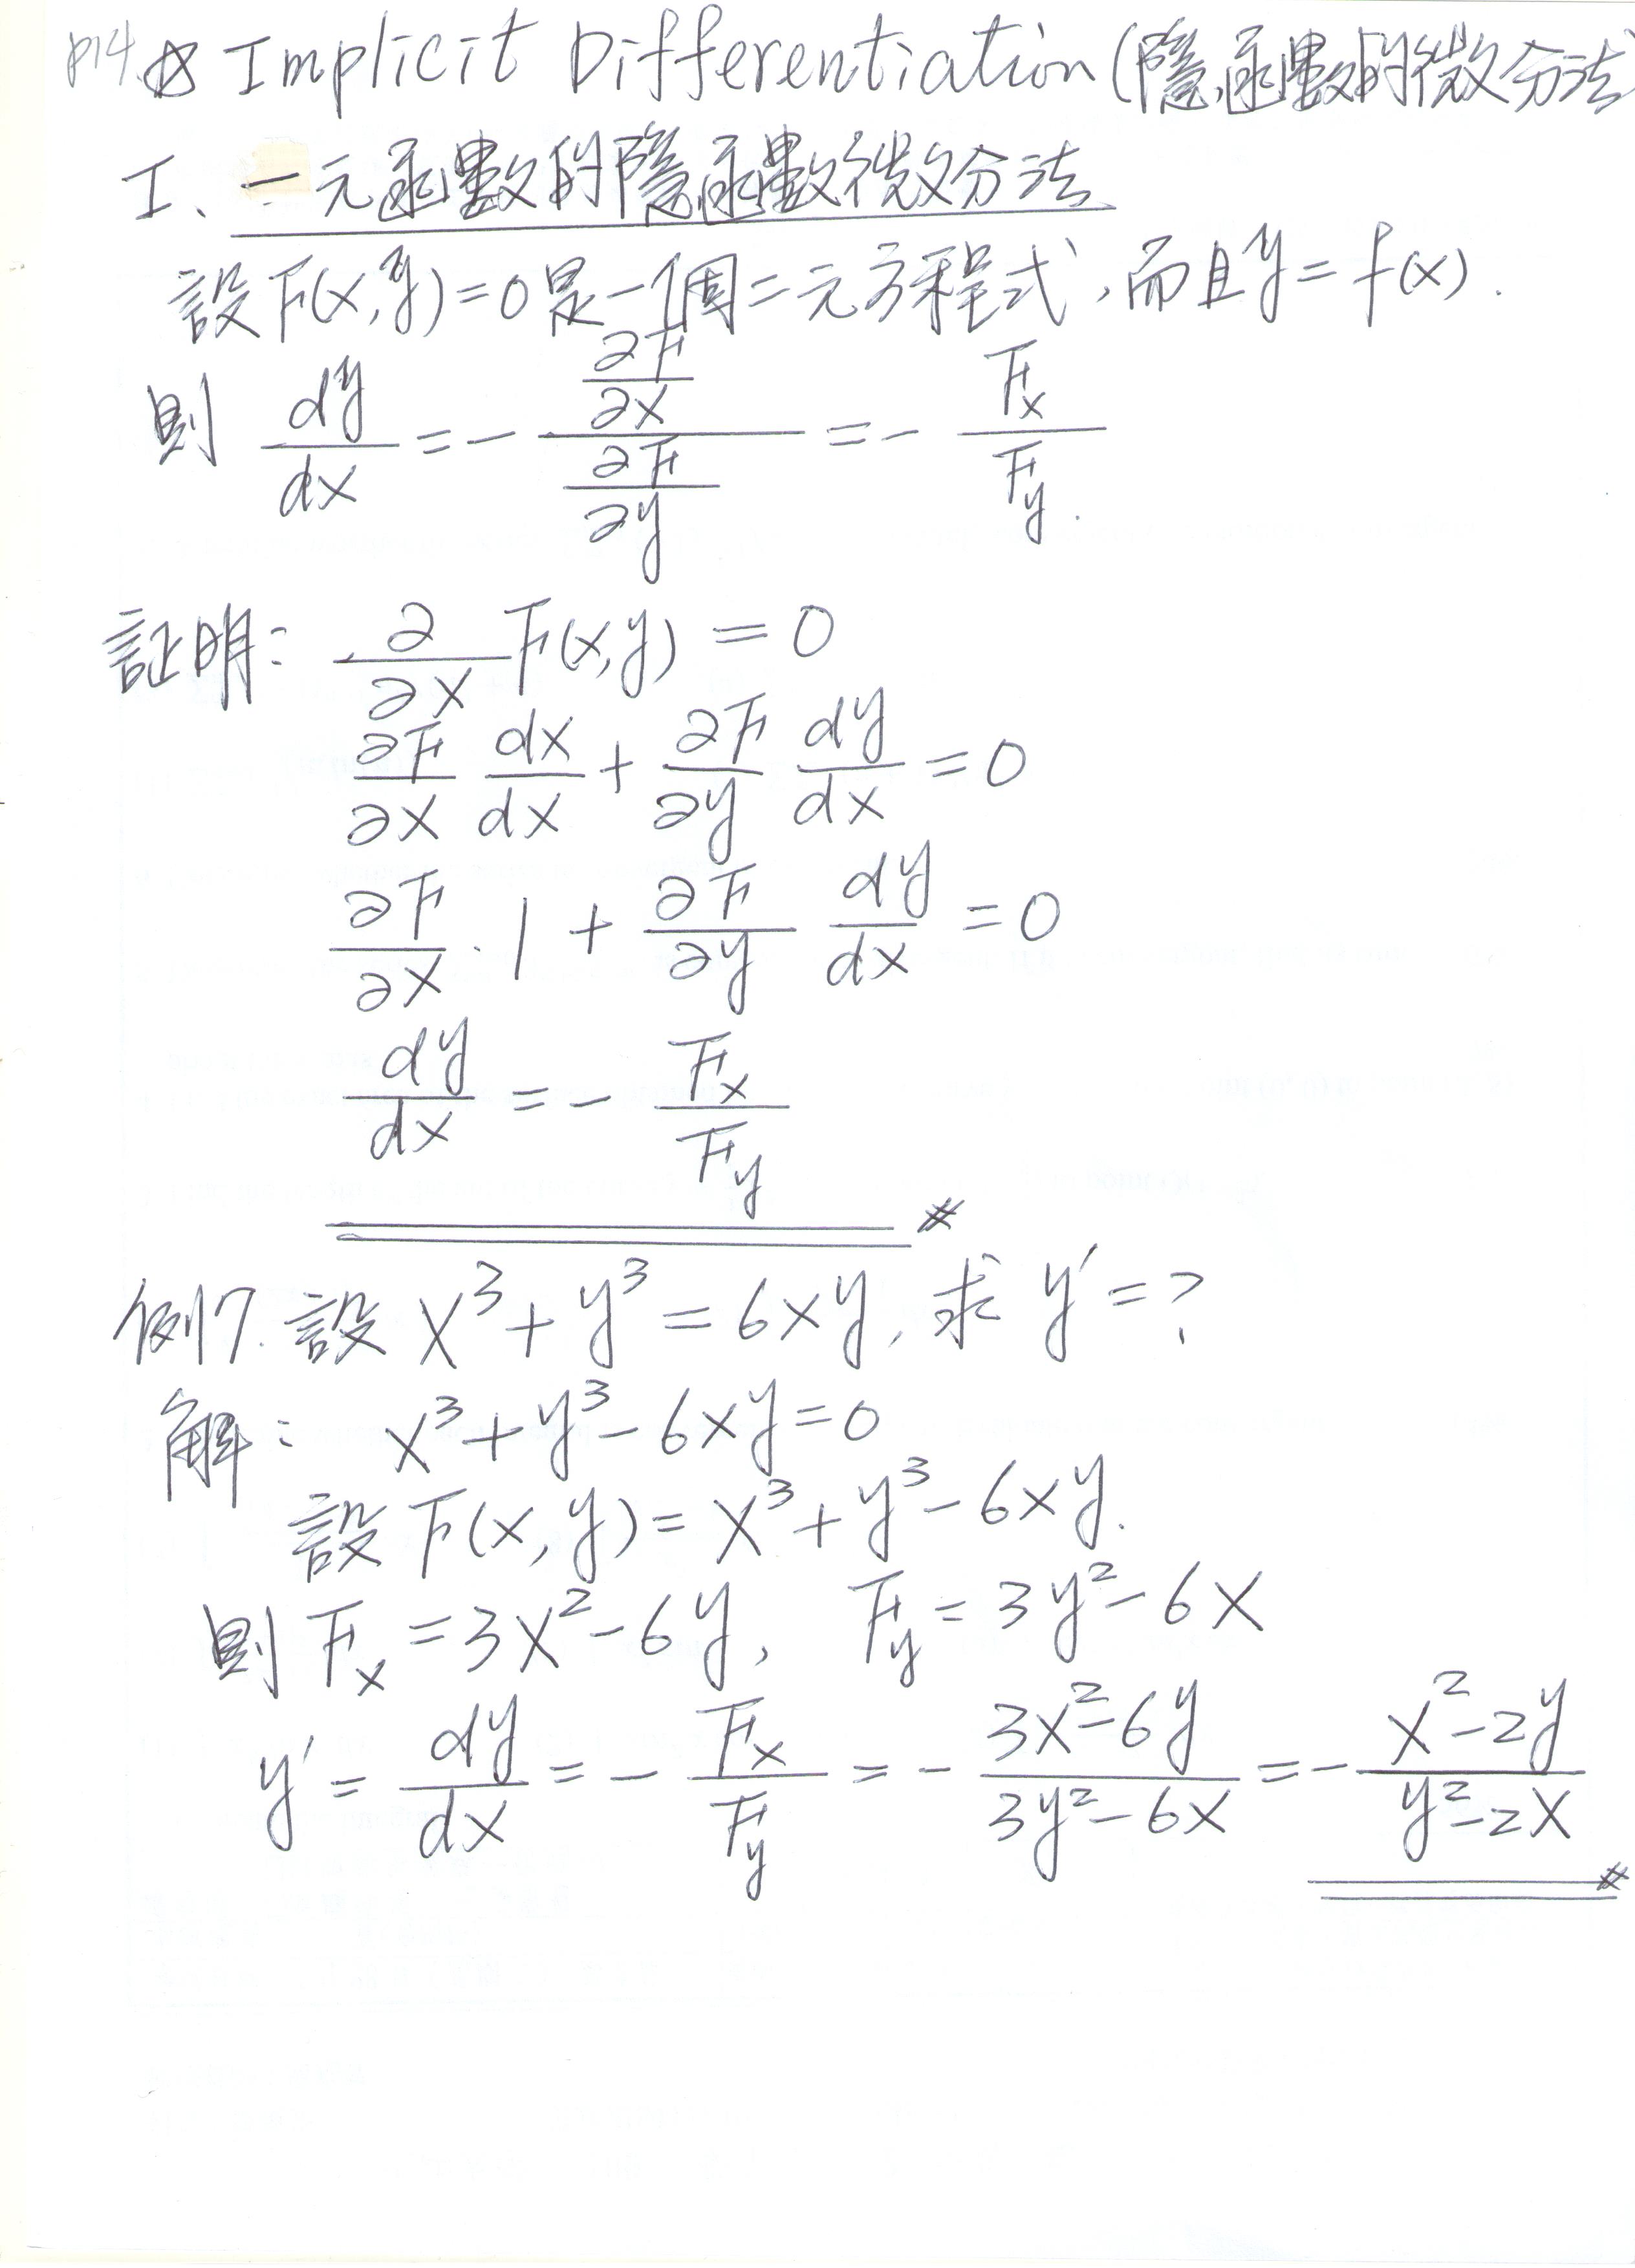 p14 ☆ Implicit Differentiation (隱函數的微分法
I、一元函數的隱函數微分法
設F(x,y)=0是一個二元方程式,而且y=f(x).
則 dy/dx = - (∂F/∂x)/(∂F/∂y) = - Fx/Fy.
証明: ∂/∂x F(x,y) = 0
∂F/∂x dx/dx + ∂F/∂y dy/dx = 0
∂F/∂x · 1 + ∂F/∂y dy/dx = 0
dy/dx = - Fx/Fy
#
例7. 設 x³+y³=6xy, 求 y'=?
解: x³+y³-6xy=0
設 F(x,y)=x³+y³-6xy.
則 Fx=3x²-6y, Fy=3y²-6x
y' = dy/dx = - Fx/Fy = - (3x²-6y)/(3y²-6x) = - (x²-2y)/(y²-2x)
#